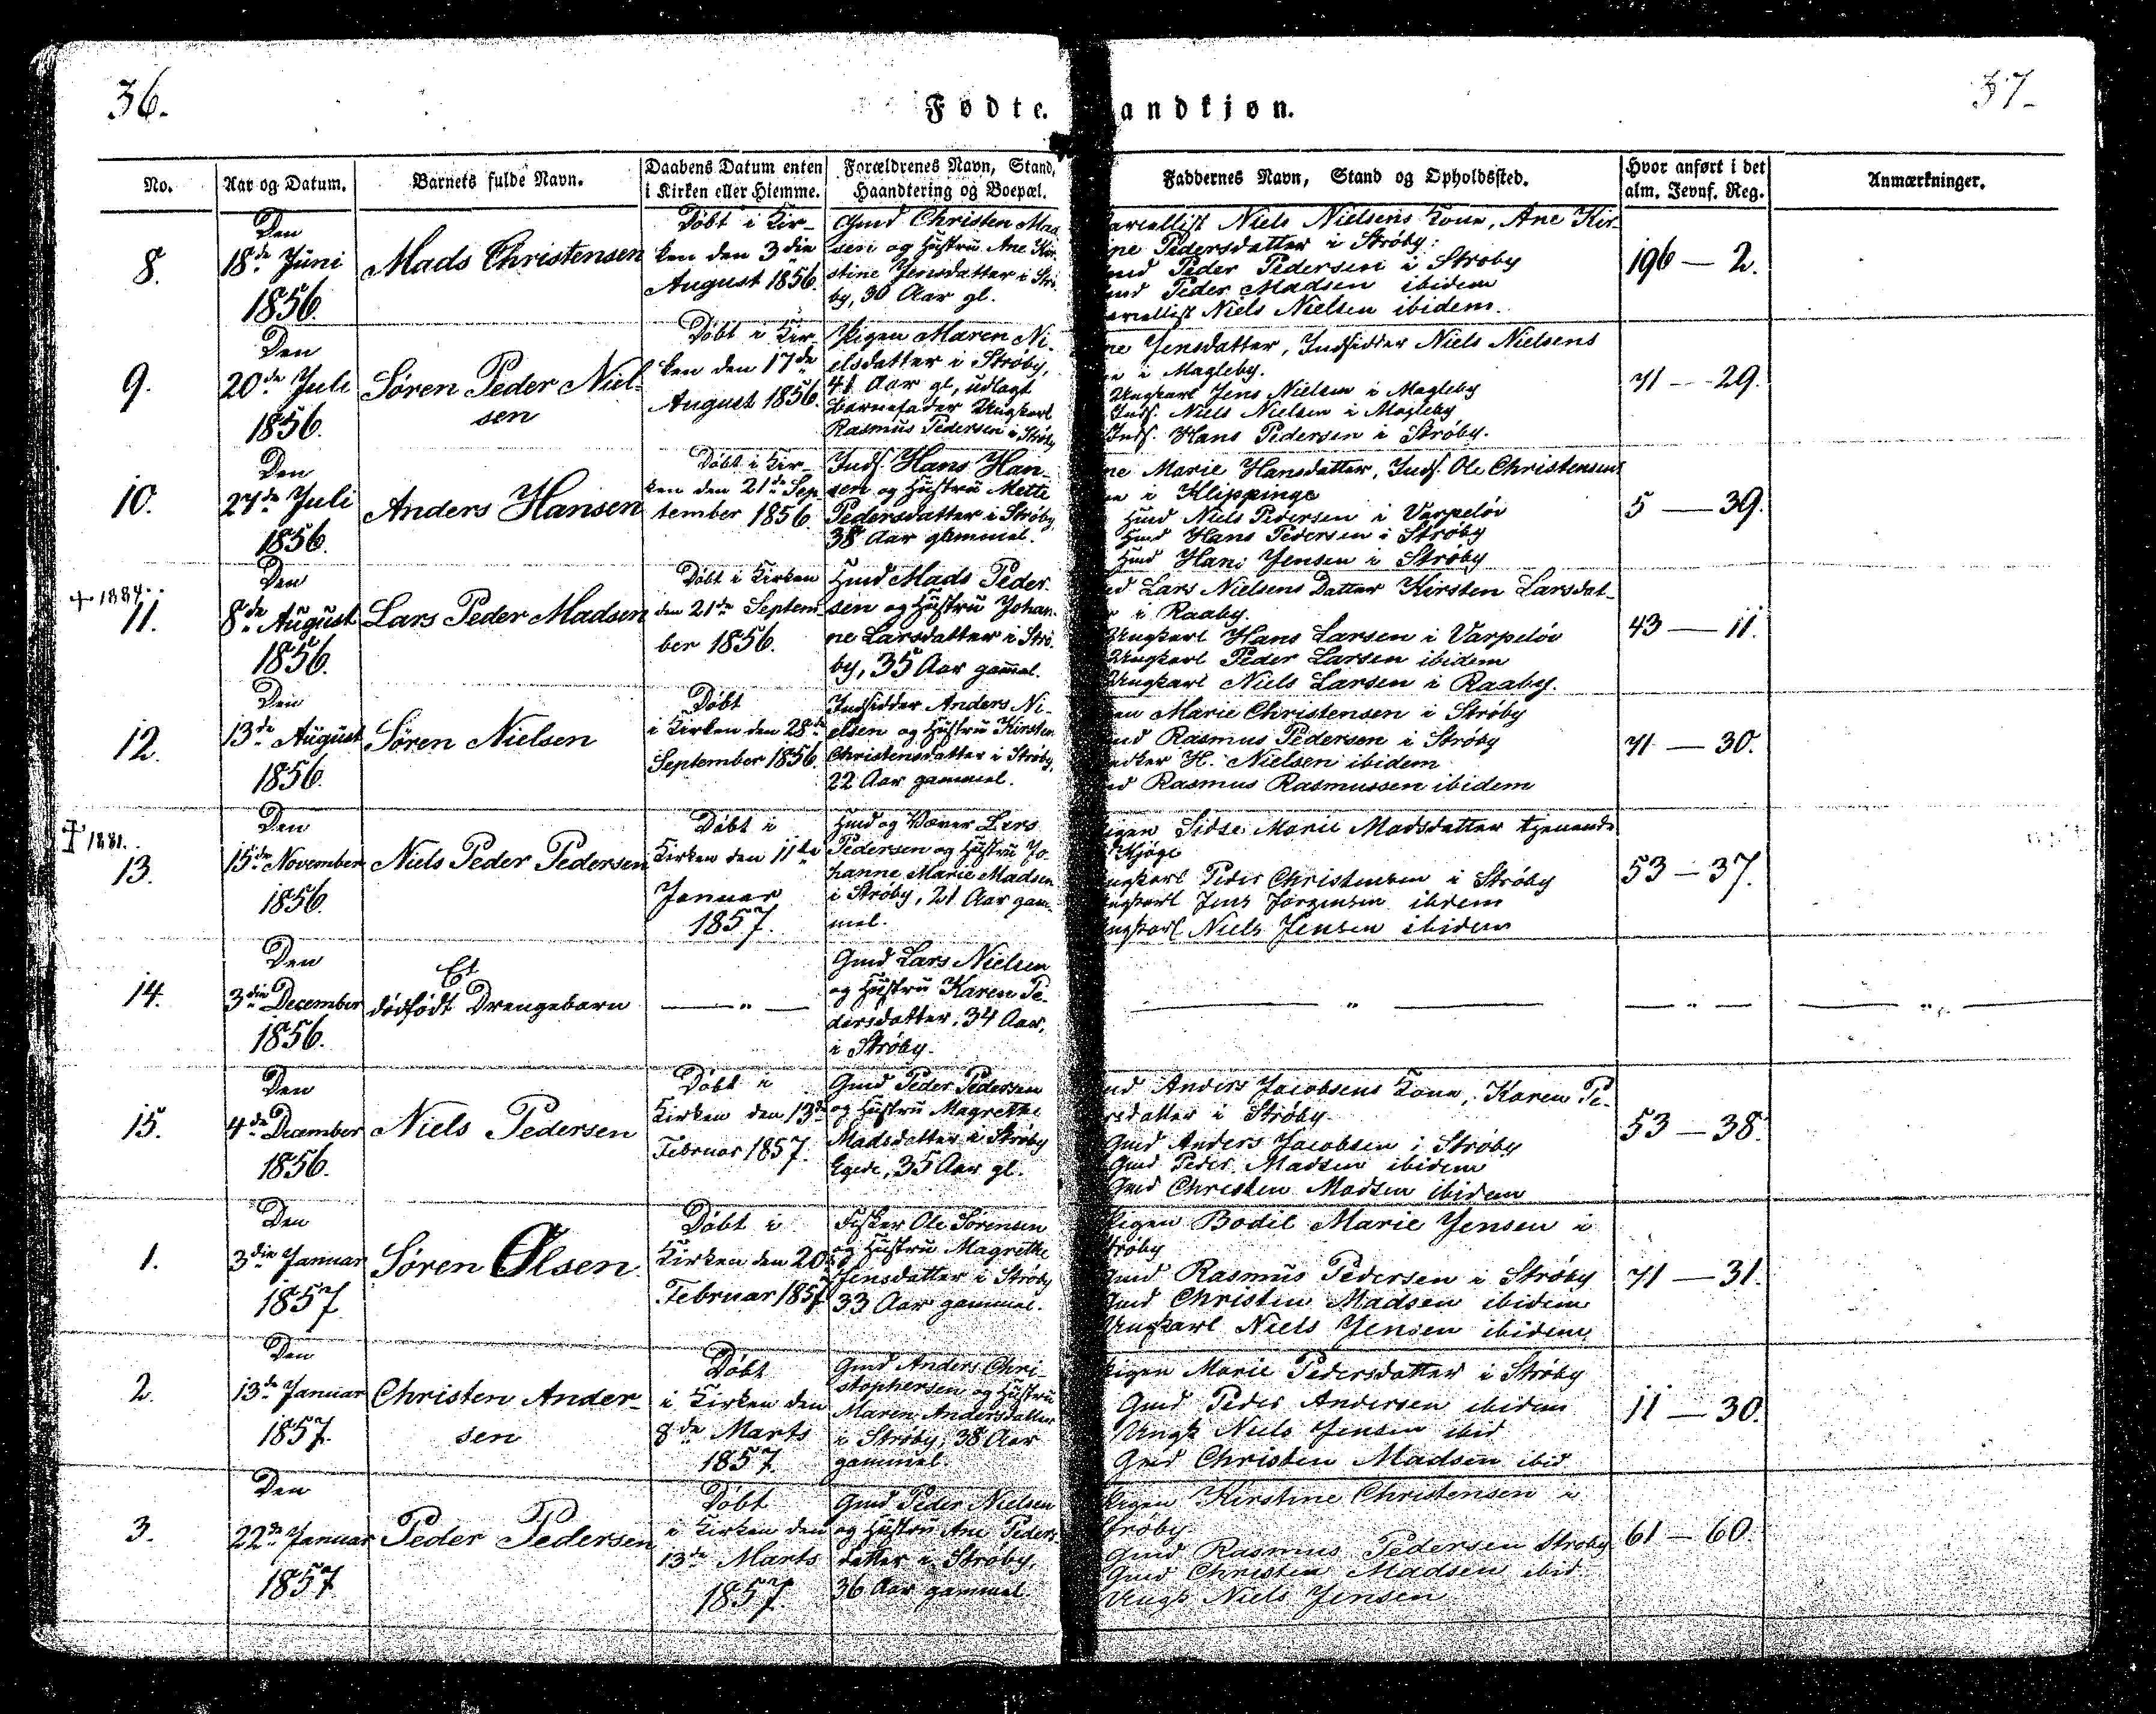 36.
37-
Fødte. andkjøn.
No.
Aar og Datum.
Barnets fulde Navn.
Daabens Datum enten
i Kirken eller Hiemme.
Forældrenes Navn, Stand,
Haandtering og Boepæl.
Faddernes Navn, Stand og Opholdssted.
Hvor anført i det
alm. Jevnf. Reg.
Anmærkninger.
8.
Den
18de Juni
1856.
Mads Christensen
Døbt i Kir-
ken den 3die
August 1856.
Gmd Christen Mad
sen og Hustru Ane Kir-
stine Jensdatter i Strø-
by, 30 Aar gl.
arcellist Niels Nielsens Kone, Ane Kir-
ine Pedersdatter i Strøby:
md Peder Pedersen i Strøby
md Peder Madsen ibidem
arcellist Niels Nielsen ibidem.
196 — 2.
9.
Den
20de Juli
1856.
Søren Peder Niel-
sen
Døbt i Kir-
ken den 17de
August 1856.
Pigen Maren Ni-
elsdatter i Strøby,
41 Aar gl, udlagt
Barnefader Ungkarl
Rasmus Pedersen i Strøby
ne Jensdatter, Indsidder Niels Nielsens
e i Magleby.
Ungkarl Jens Nielsen i Magleby
Inds. Niels Nielsen i Magleby
Inds. Hans Pedersen i Strøby.
71 — 29.
10.
Den
27de Juli
1856.
Anders Hansen
Døbt i Kir-
ken den 21de Sep-
tember 1856.
Inds. Hans Han
sen og Hustru Mette
Pedersdatter i Strøby,
38 Aar gammel.
ne Marie Hansdatter, Inds. Ole Christensens
e i Klippinge
Hmd Niels Pedersen i Varpeløv
Hmd Hans Pedersen i Strøby
Hmd Hans Jensen i Strøby
5 — 39.
+ 1884.
11.
Den
8de August
1856.
Lars Peder Madsen
Døbt i Kirken
den 21de Septem-
ber 1856.
Hmd Mads Peder-
sen og Hustru Johan-
ne Larsdatter i Strø-
by, 35 Aar gammel.
md Lars Nielsens Datter Kirsten Larsdat-
r i Raaby.
Ungkarl Hans Larsen i Varpeløv
Ungkarl Peder Larsen ibidem
Ungkarl Niels Larsen i Raaby.
43 — 11.
12.
Den
13de August
1856.
Søren Nielsen
Døbt
i Kirken den 28de
September 1856.
Indsidder Anders Ni-
elsen og Hustru Kirsten
Christensdatter i Strøby,
22 Aar gammel.
en Marie Christensen i Strøby
md Rasmus Pedersen i Strøby
H. Nielsen ibidem
md Rasmus Rasmussen ibidem
71 — 30.
† 1881.
13.
Den
15de November
1856.
Niels Peder Pedersen
Døbt i
Kirken den 11te
Januar
1857.
Hmd og Væver Lars
Pedersen og Hustru Jo-
hanne Marie Madsen
i Strøby, 21 Aar gam-
mel.
igen Sidse Marie Madsdatter tjenende
Kjøge
ngkarl Peder Christensen i Strøby
ngkarl Jens Jørgensen ibidem
ngkarl Niels Jensen ibidem
53 — 37.
14.
Den
3die December
1856.
Et
dødfødt Drengebarn
— " —
Gmd Lars Nielsen
og Hustru Karen Pe-
dersdatter, 34 Aar,
i Strøby.
— " —
— " —
— " —
15.
Den
4de December
1856.
Niels Pedersen
Døbt i
Kirken den 13de
Februar 1857.
Gmd Peder Pedersen
og Hustru Magrethe
Madsdatter i Strøby
Egede, 35 Aar gl.
md Anders Jacobsens Kone, Karen Pe-
rsdatter i Strøby
Gmd Anders Jacobsen i Strøby
Gmd Peder Madsen ibidem
Gmd Christen Madsen ibidem
53 — 38.
1.
Den
3die Januar
1857
Søren Olsen
Døbt i
Kirken den 20
Februar 1857
Fisker Ole Sørensen
og Hustru Magrethe
Jensdatter i Strøby
33 Aar gammel.
Pigen Bodil Marie Jensen i
trøby
Gmd Rasmus Pedersen i Strøby
Gmd Christen Madsen ibidem
Ungkarl Niels Jensen ibidem
71 — 31.
2.
Den
13de Januar
1857.
Christen Ander-
sen
Døbt
i Kirken den
8de Marts
1857.
Gmd Anders Chri-
stophersen og Hustru
Maren Andersdatter
i Strøby, 38 Aar
gammel.
Pigen Marie Pedersdatter i Strøby
Gmd Peder Andersen ibidem
Ungk Niels Jensen ibid
Gmd Christen Madsen ibid
11 — 30.
3.
Den
22de Januar
1857
Peder Pedersen
Døbt
i Kirken den
13de Marts
1857.
Gmd Peder Nielsen
og Hustru Ane Peders-
datter i Strøby,
36 Aar gammel
Pigen Kirstine Christensen i
Strøby
Gmd Rasmus Pedersen Strøby
Gmd Christen Madsen ibid
Ungk Niels Jensen
61 — 60.